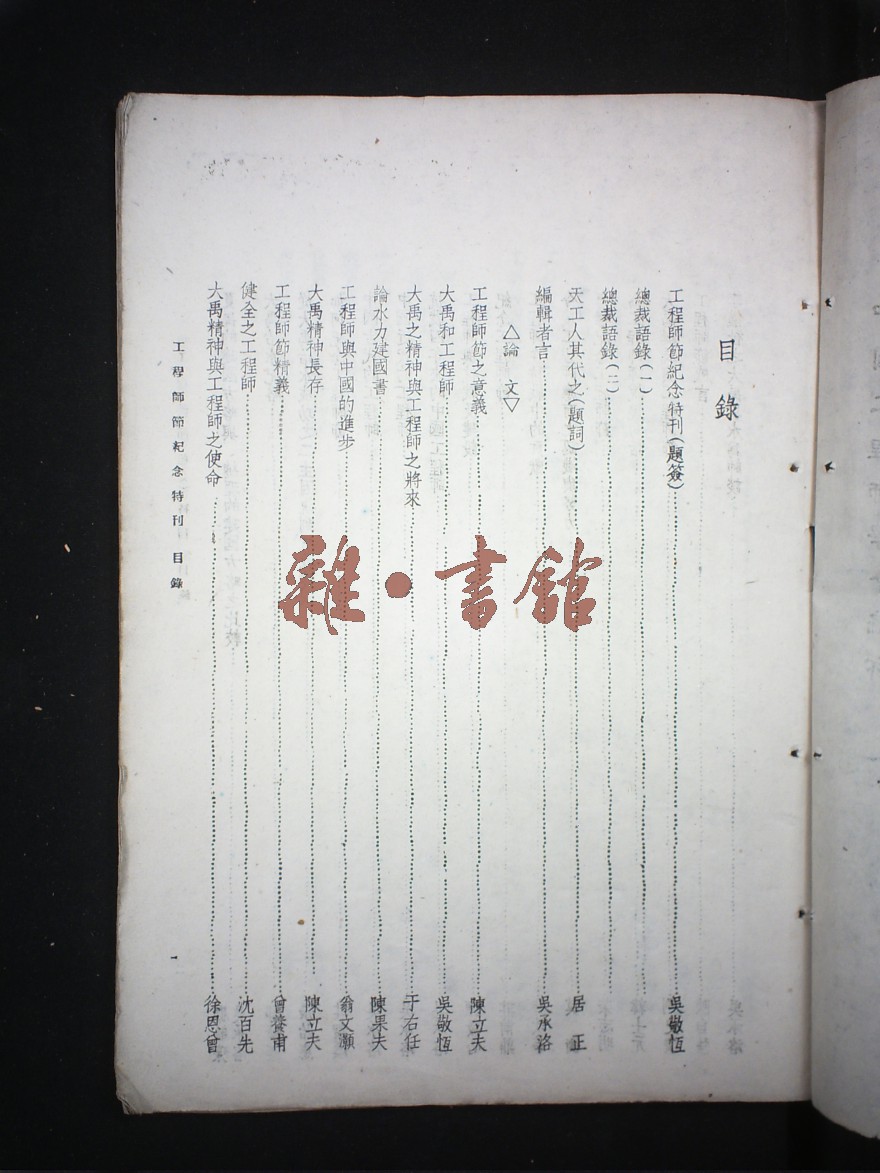 目錄
工程師節紀念特刊(題簽)……吳敬恆
總裁語錄(一)
總裁語錄(二)
天工人其代之(題詞)……居 正
編輯者言……吳承洛
△論 文▽
工程師節之意義……陳立夫
大禹和工程師……吳敬恆
大禹之精神與工程師之將來……于右任
論水力建國書……陳果夫
工程師與中國的進步……翁文灝
大禹精神長存……陳立夫
工程師節精義……曾養甫
健全之工程師……沈百先
大禹精神與工程師之使命……徐恩曾
工程師節紀念特刊 目錄
一
雜·書館